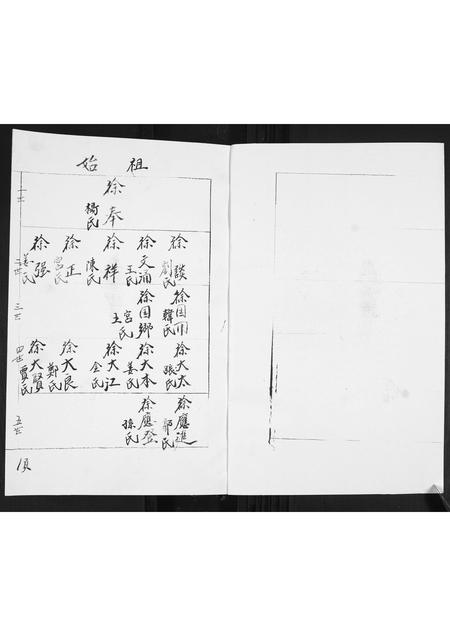 始祖
一世
徐奉
楊氏
二世
徐談
劉氏
徐文涌
王氏
徐祥
陳氏
徐正
宮氏
徐强
姜氏
三世
徐国川
韓氏
徐国鄉
宮氏
王
四世
徐大太
張氏
徐大本
姜氏
徐大江
金氏
徐大良
鄭氏
徐大賢
賈氏
五世
徐應進
郭氏
徐應登
孫氏
1頁